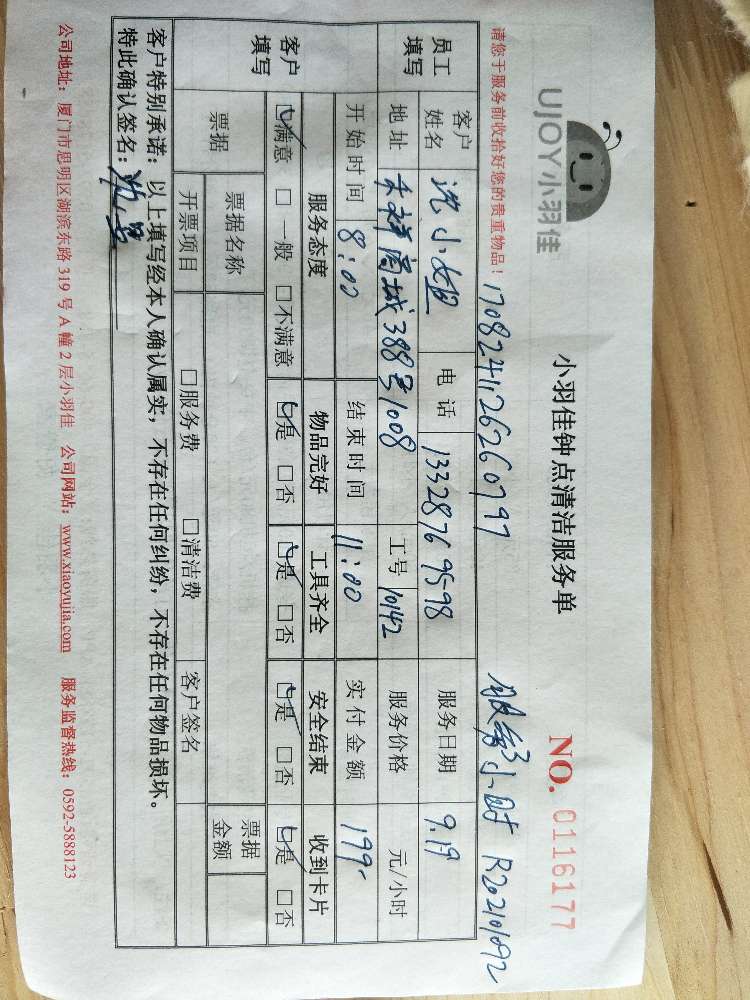 UJOY小羽佳
小羽佳钟点清洁服务单
NO. 0116177
请您于服务前收拾好您的贵重物品！
17082411262607997
服务3小时 R202101092
员工填写
客户姓名 沈小姐 电话 13328769598 服务日期 9.19
地址 禾祥商城388号1008 工号 10142 服务价格 元/小时
开始时间 8:00 结束时间 11:00 实付金额 199-
客户填写
服务态度 物品完好 工具齐全 安全结束 收到卡片
☑满意 □一般 □不满意 ☑是 □否 ☑是 □否 ☑是 □否 ☑是 □否
票据 票据名称 票据金额
开票项目 □服务费 □清洁费 客户签名
客户特别承诺：以上填写经本人确认属实，不存在任何纠纷，不存在任何物品损坏。
特此确认签名：
公司地址：厦门市思明区湖滨东路 319 号 A 幢 2 层小羽佳 公司网站：www.xiaoyujia.com 服务监督热线：0592-5888123